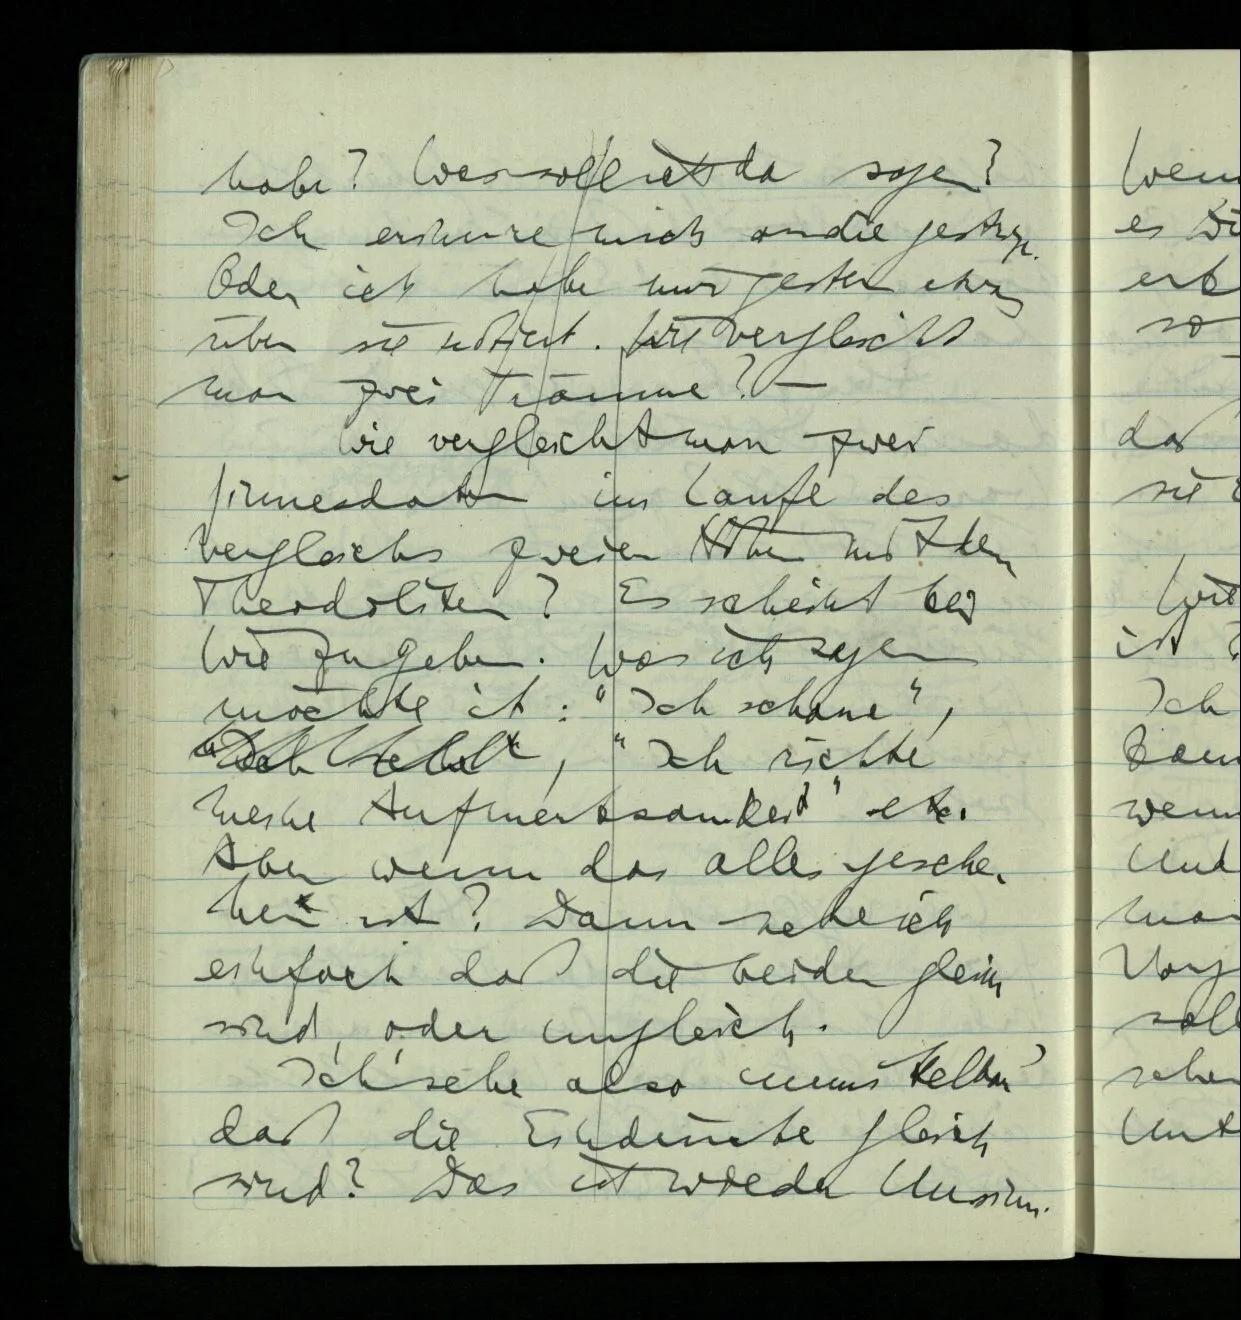 habe? Was soll ich da sagen?
Ich erinnere mich an die gestrige.
Oder ich habe mir gestern etwas
über sie notiert. Wie vergleicht
man zwei Träume? —
Wie vergleicht man zwei
Sinnesdaten im Laufe des
Vergleichs zweier Höhen mit dem
Theodoliten? Es scheint kein
Wie zu geben. Was ich sagen
möchte ist: "Ich schaue",
"Ich richte
meine Aufmerksamkeit" etc.
Aber wenn das alles gesche-
hen ist? Dann sehe ich
einfach daß die beiden gleich
sind, oder ungleich.
'Ich sehe also unmittelbar'
daß die Eindrücke gleich
sind? Das ist wieder Unsinn.
es
so
daß
sie
ist
Ich
Und